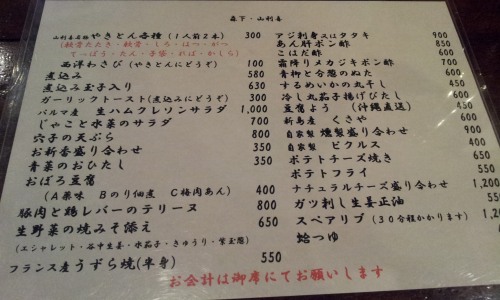 森下・山利喜
山利喜名物やきとん各種（1人前2本） 300
（軟骨たたき・軟骨・しろ・はつ・がつ
てっぽう・たん・手羽・おっぱ・かしら）
西洋わさび（やきとんにどうぞ） 100
煮込み 580
煮込み玉子入り 630
ガーリックトースト（煮込みにどうぞ） 300
パルマ産 生ハムクレソンサラダ 1,000
じゃこと水菜のサラダ 700
穴子の天ぷら 800
お新香盛り合わせ 350
青菜のおひたし 350
おぼろ豆腐
（A薬味 Bのり佃煮 C梅肉あん） 400
豚肉と鶏レバーのテリーヌ 800
生野菜の焼みそ添え 650
（エシャレット・谷中生姜・水茄子・きゅうり・紫玉葱）
フランス産うずら焼（半身） 550
アジ刺身又はタタキ 900
あん肝ポン酢 850
こはだ酢 600
霜降りメカジキポン酢
青柳と分葱のぬた
するめいかの丸干し
冷し丸茄子揚げびたし
豆腐よう （沖縄直送） 450
新島産 くさや 700
自家製 燻製盛り合わせ 900
自家製 ピクルス 400
ポテトチーズ焼き 650
ポテトフライ 550
ナチュラルチーズ盛り合わせ 1,200
ガツ刺し生姜正油 550
スペアリブ（30分程かかります）
蛤つゆ 650
お会計は御席にてお願いします